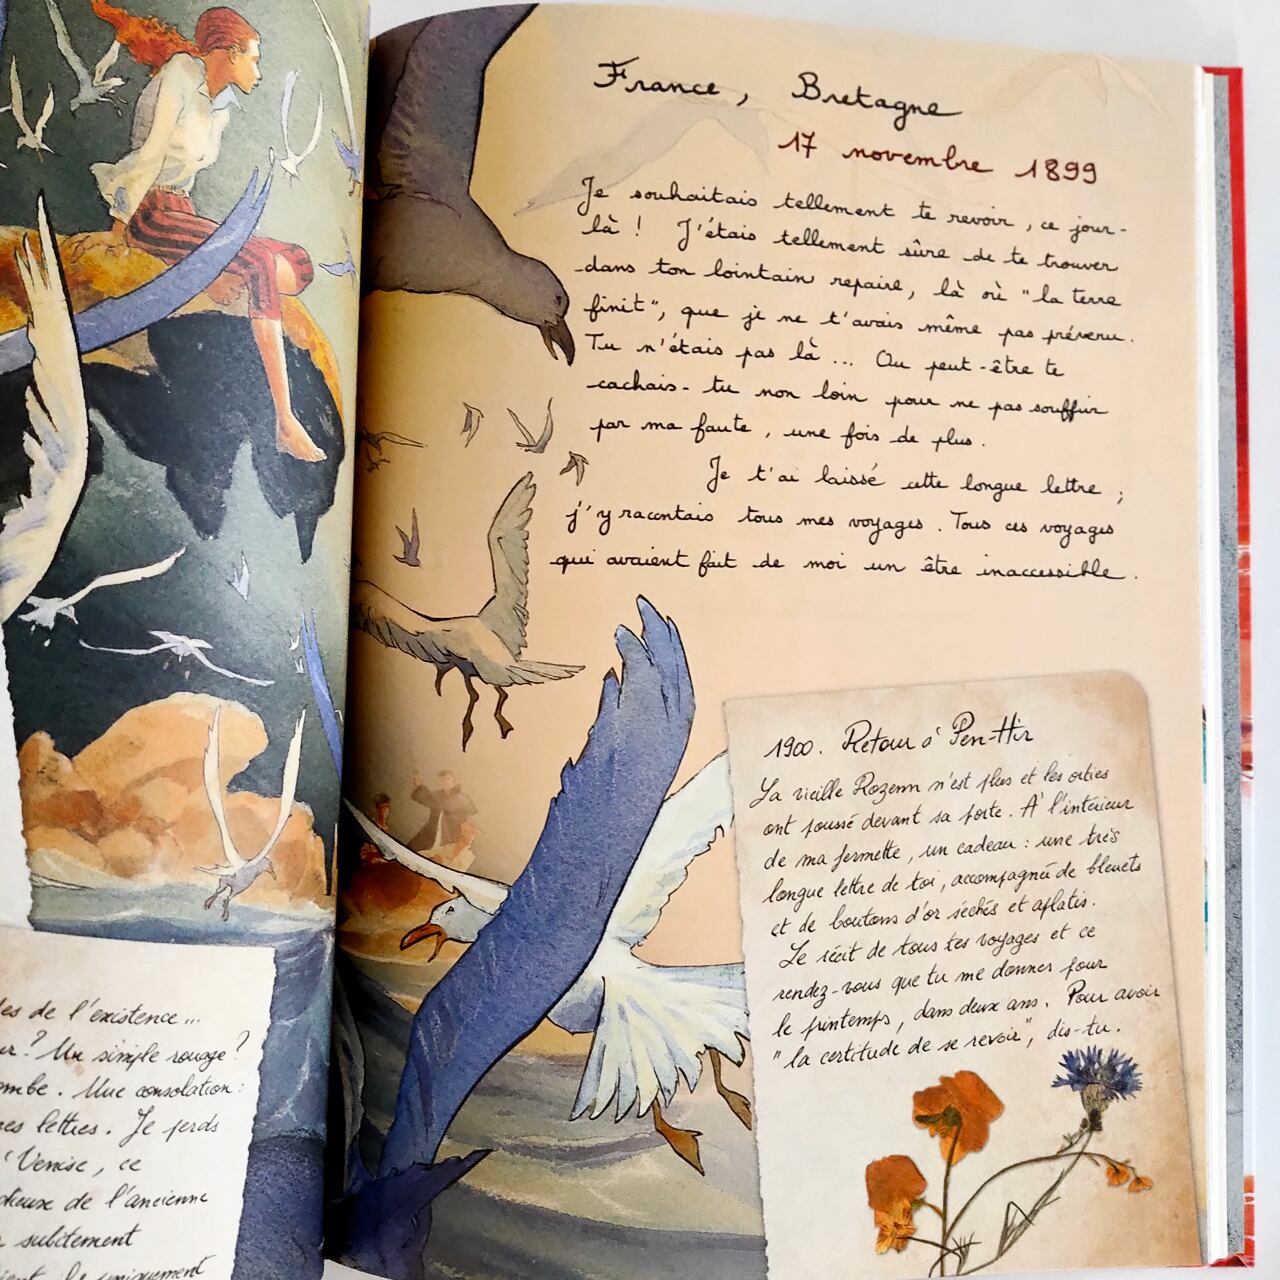 les de l'existence...
? Un simple rouage?
Une consolation:
lettres. Je perds
Venise, ce
de l'ancienne
subitement
uniquement
France, Bretagne
17 novembre 1899
Je souhaitais tellement te revoir, ce jour-
là ! J'étais tellement sûre de te trouver
dans ton lointain repaire, là où "la terre
finit", que je ne t'avais même pas prévenu.
Tu n'étais pas là ... Ou peut-être te
cachais-tu non loin pour ne pas souffrir
par ma faute, une fois de plus.
Je t'ai laissé cette longue lettre ;
j'y racontais tous mes voyages. Tous ces voyages
qui avaient fait de moi un être inaccessible.
1900. Retour à Pen-Hir
La vieille Rozenn n'est plus et les orties
ont poussé devant sa porte. À l'intérieur
de ma fermette, un cadeau : une très
longue lettre de toi, accompagnée de bleuets
et de boutons d'or séchés et aplatis.
Le récit de tous tes voyages et ce
rendez-vous que tu me donnes pour
le printemps, dans deux ans. Pour avoir
"la certitude de se revoir", dis-tu.